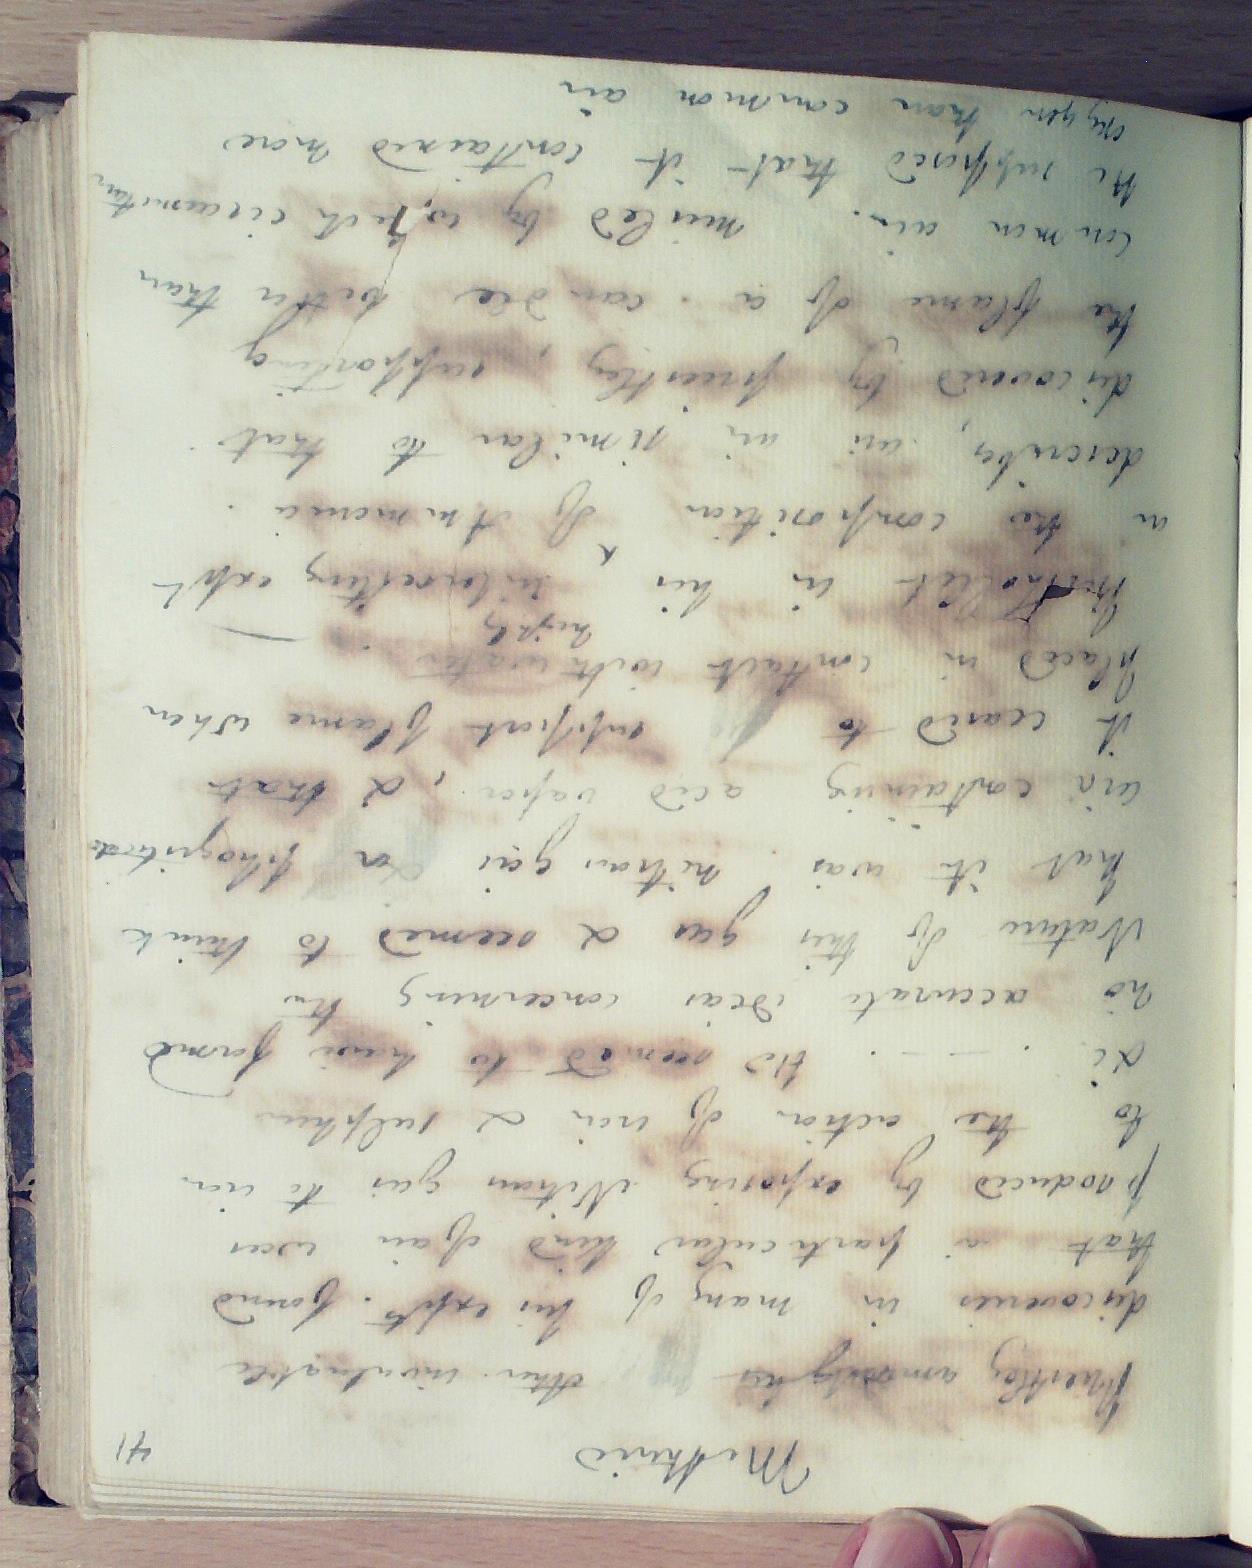 41
Methuid
Priestley amongst his other inestimable
discoveries in many of his expts. found
that a particular kind of air was
produced by exposing Nitrous gas to iron
to the action of iron & sulphur
&c. — — . He seemed to have formed
no accurate ideas concerning the
Nature of this gas & seemed to think
that it was nitrous gas or phlogisticated
air containing acid vapor, & that
it ceased to support flame when
placed in contact with water —
highly
Berthollet in his ^ interesting expt
on the composition of Ammonia
describes, an air similar to that
discovered by priestley, supporting
the flame of a candle better than
common air. misled by which circumstance
He supposed that it contained more
oxygen than common air